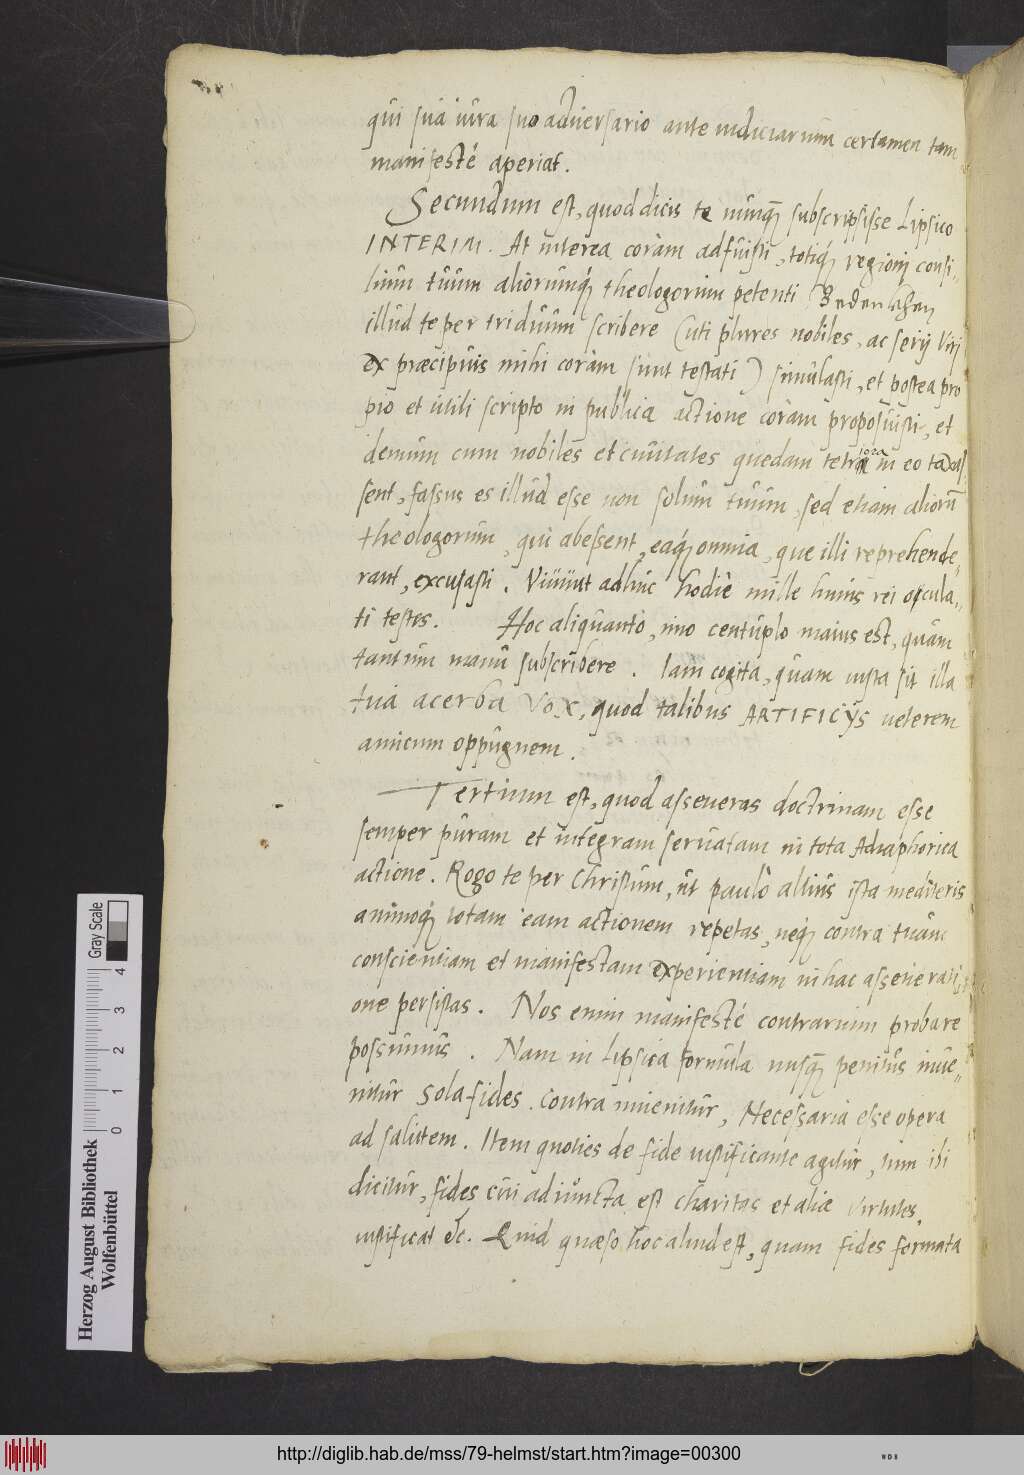 qui sua iura suo adversario ante iudiciarium certamen tam
manifesté aperiat.
Secundum est, quod dicis te nunq̃ subscripsisse Lipsico
INTERIM. At interea coràm adfuisti, totiq́; regioni consi-
lium tuum aliorumq́; theologorum petenti Bedencken
illud te per triduum scribere (uti plures nobiles, ac serij viri
ex præcipuis mihi coràm sunt testati) simulasti, et postea pro
pio et utili scripto in publica actione coràm proposuisti, et
demum cum nobiles et ciuitates quedam tetriora in eo taxas
sent, fassus es illud esse non solum tuum, sed etiam aliorũ
theologorum, qui abessent, eaq́; omnia, que illi reprehende-
rant, excusasti. Viuunt adhuc hodiè mille huius rei occula-
ti testes. Hoc aliquanto, imo centuplo maius est, quàm
tantum manu subscribere. Iam cogita, quam iusta sit illa
tua acerba VOX, quod talibus ARTIFICIIS ueterem
amicum oppugnem.
Tertium est, quod asseueras doctrinam esse
semper puram et integram seruatam in tota Adiaphorica
actione. Rogo te per Christum, ut paulò altius ista mediteris
animoq́; totam eam actionem repetas, neq́; contra tuam
conscientiam et manifestam experientiam in hac asseuerati-
one persistas. Nos enim manifesté contrarium probare
possumus. Nam in Lipsica formula nusq̃ penitus inue-
nitur Sola fides. Contra inuenitur, Necessaria esse opera
ad salutem. Item quoties de fide iustificante agitur, tum ibi
dicitur, fides cui adiuncta est charitas et aliæ virtutes,
iustificat etc. Quid quæso hoc aliud est, quam fides formata
Gray Scale
0 1 2 3 4
Herzog August Bibliothek
Wolfenbüttel
http://diglib.hab.de/mss/79-helmst/start.htm?image=00300